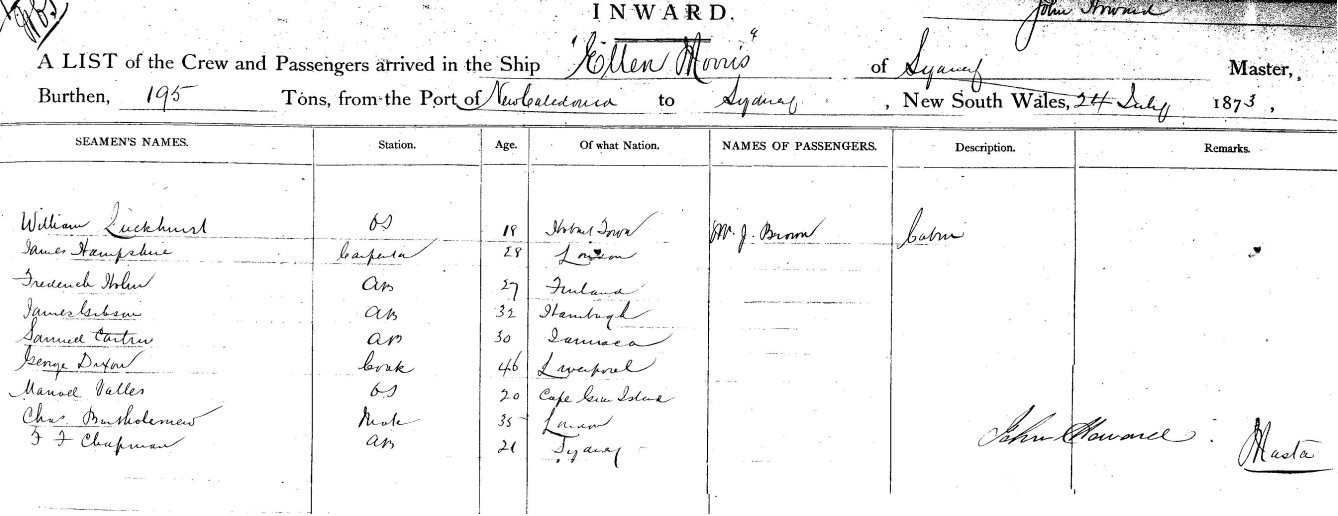 INWARD.
John Howard
A LIST of the Crew and Passengers arrived in the Ship "Ellen Morris" of Sydney Master,
Burthen, 195 Tons, from the Port of New Caledonia to Sydney, New South Wales, 24 July 1873,
SEAMEN'S NAMES. Station. Age. Of what Nation. NAMES OF PASSENGERS. Description. Remarks.
William Luckhurst OS 18 Hobart Town Mr. J. Brown Cabin
James Hampshire Carpenter 28 London
Frederick Holm AB 27 Finland
James Gibson AB 32 Hamburgh
Samuel AB 30 Jamaica
George Dixon Cook 46 Liverpool
Manoel Valles OS 20 Cape Island
Chas. Bartholemew Mate 35 London
F F Chapman AB 21 Sydney
John Howard
Master